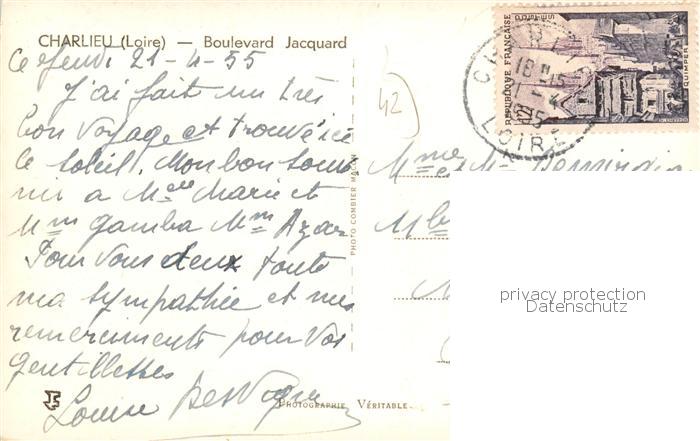 CHARLIEU (Loire) — Boulevard Jacquard
Ce Jeudi 21-4-55
J'ai fait un très
bon voyage et trouvé ici
le soleil. Mon bon souve
nir a Melle Marie et
Mm Gamba Mm Azar
Pour vous deux toute
ma sympathie et mes
remerciments pour vos
gentillesses
Louise
PHOTOGRAPHIE VÉRITABLE
PHOTO COMBIER MACON
42
REPUBLIQUE FRANÇAISE
QUIMPER
12F
CHARLIEU
18H15
21-4
LOIRE
Mme et M.
privacy protection
Datenschutz